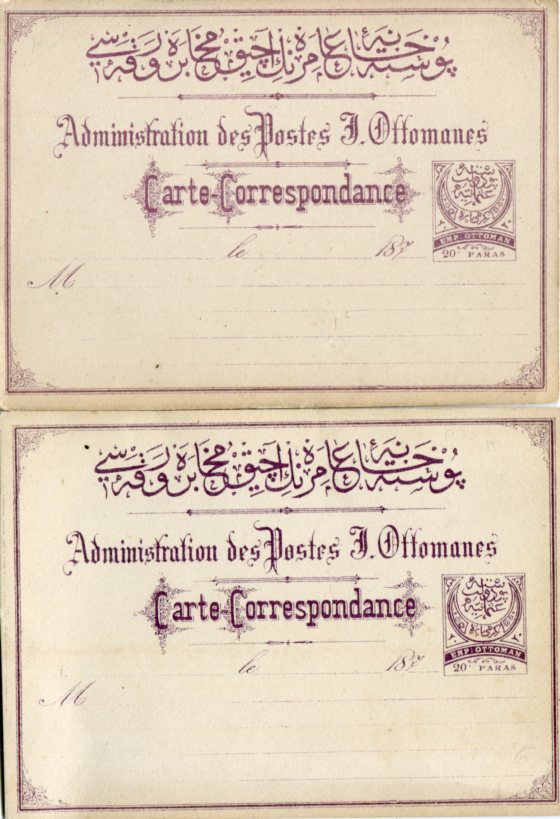 پوسته خانهٔ عامره نك آچیق مخابره ورقه سی
Administration des Postes I. Ottomanes
Carte-Correspondance
EMP: OTTOMAN
20 PARAS
le 187
M
پوسته خانهٔ عامره نك آچیق مخابره ورقه سی
Administration des Postes I. Ottomanes
Carte-Correspondance
EMP: OTTOMAN
20 PARAS
le 187
M